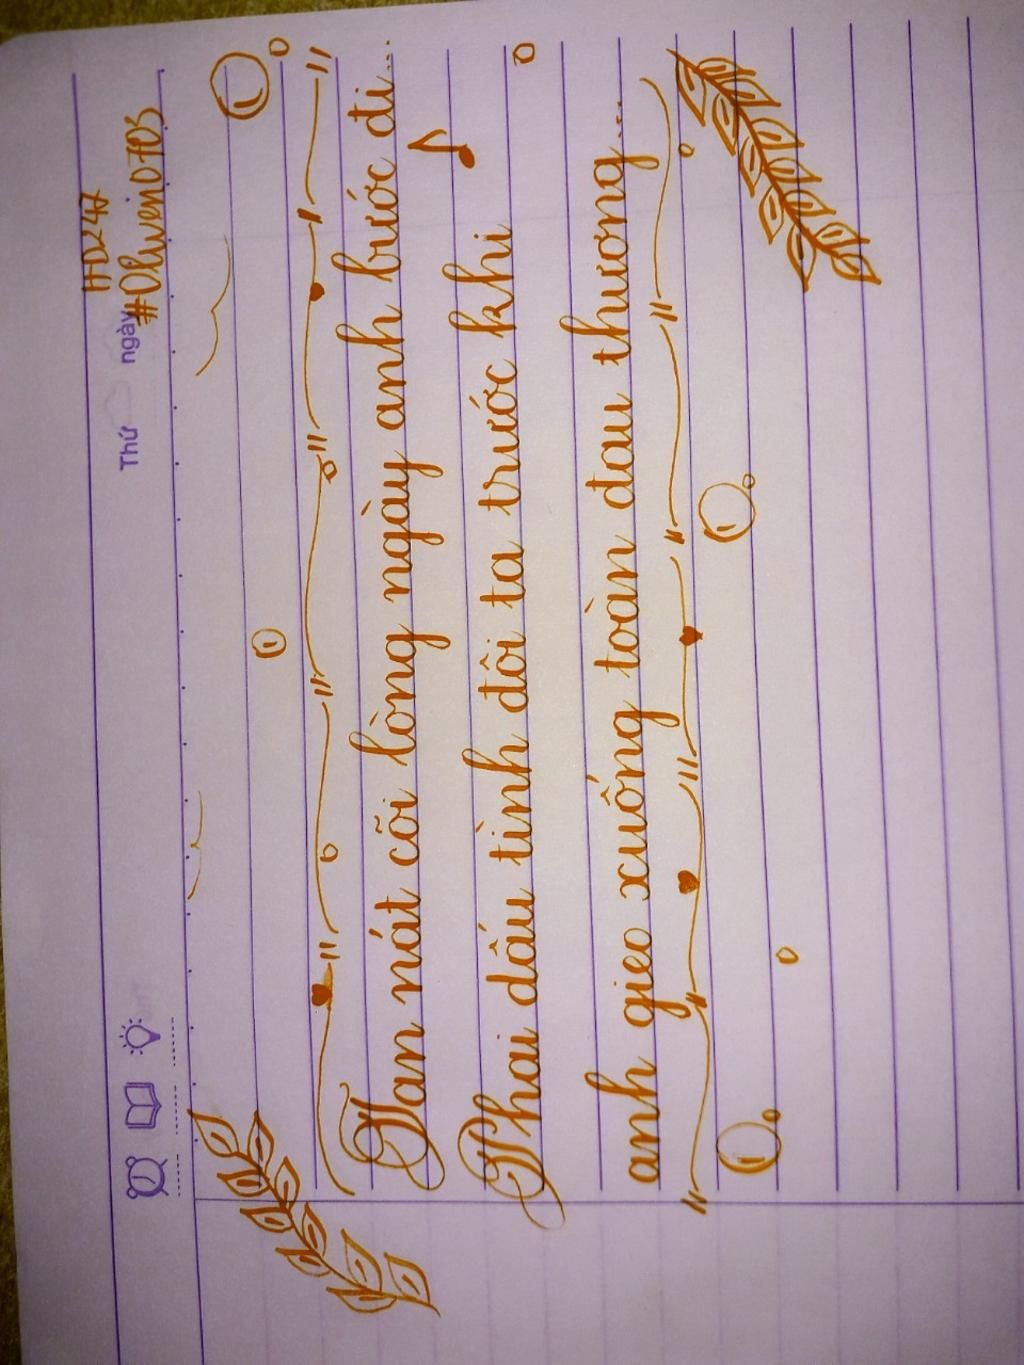 HD247
Thứ ngày #Dhwein0703
Tan nát cõi lòng ngày anh bước đi...
Phai dấu tình đôi ta trước khi
anh gieo xuống toàn đau thương...